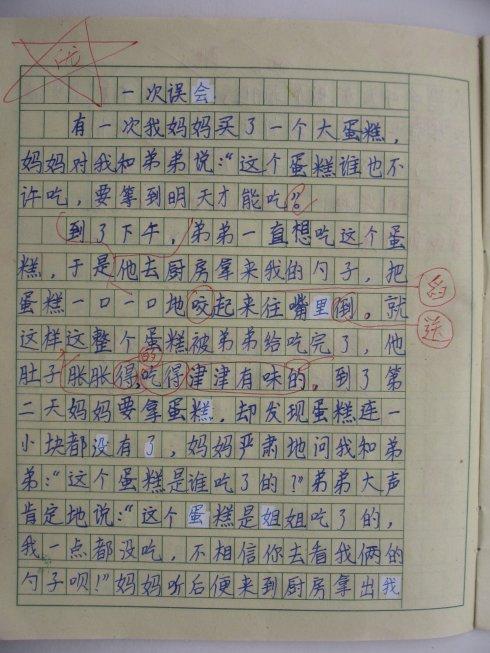 优
一次误会
有一次我妈妈买了一个大蛋糕,
妈妈对我和弟弟说:“这个蛋糕谁也不
许吃,要等到明天才能吃”。
到了下午,弟弟一直想吃这个蛋
糕,于是他去厨房拿来我的勺子,把
蛋糕一口一口地咬起来往嘴里倒。就
舀
这样这整个蛋糕被弟弟给吃完了,他
送
的
肚子胀胀得,吃得津津有味的。到了第
二天妈妈要拿蛋糕,却发现蛋糕连一
小块都没有了,妈妈严肃地问我和弟
弟:“这个蛋糕是谁吃了的?”弟弟大声
肯定地说:“这个蛋糕是姐姐吃了的,
我一点都没吃,不相信你去看我俩的
勺子呗!”妈妈听后便来到厨房拿出我